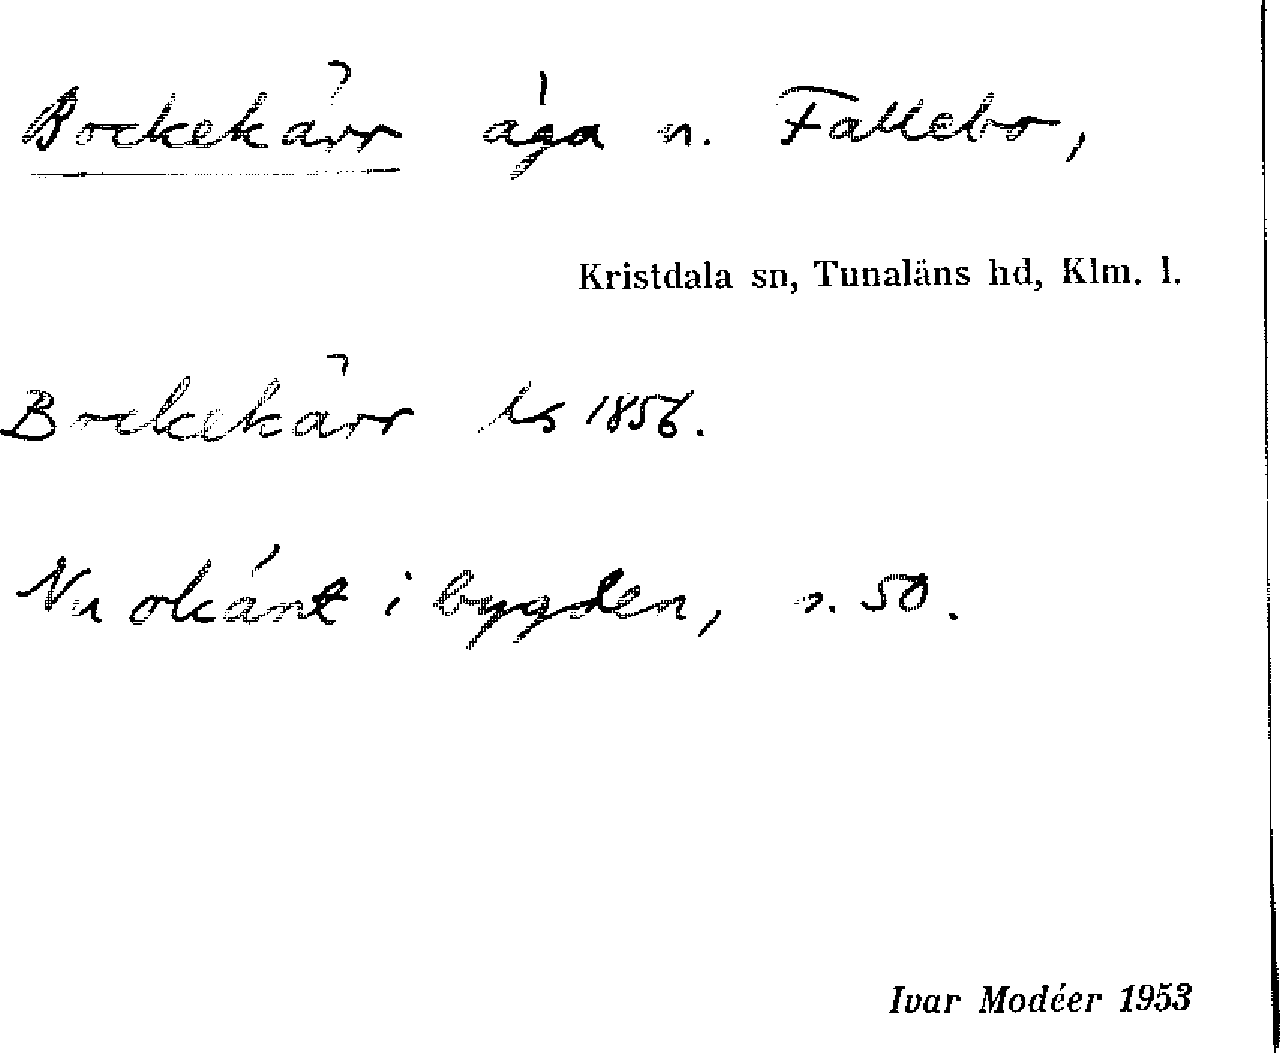 Bockekärr äga n. Fallebo,
Kristdala sn, Tunaläns hd, Klm. l.
Bockekärr ls 1856.
Nu okänt i bygden, s. 50.
Ivar Modéer 1953